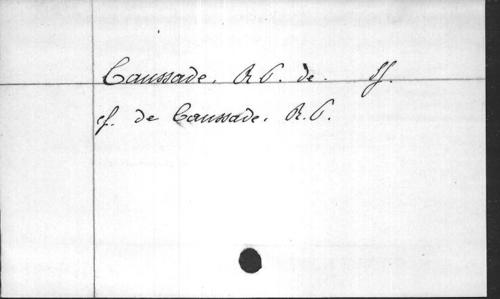 Caussade. R. P. de. SJ.
cf. de Caussade. R. P.